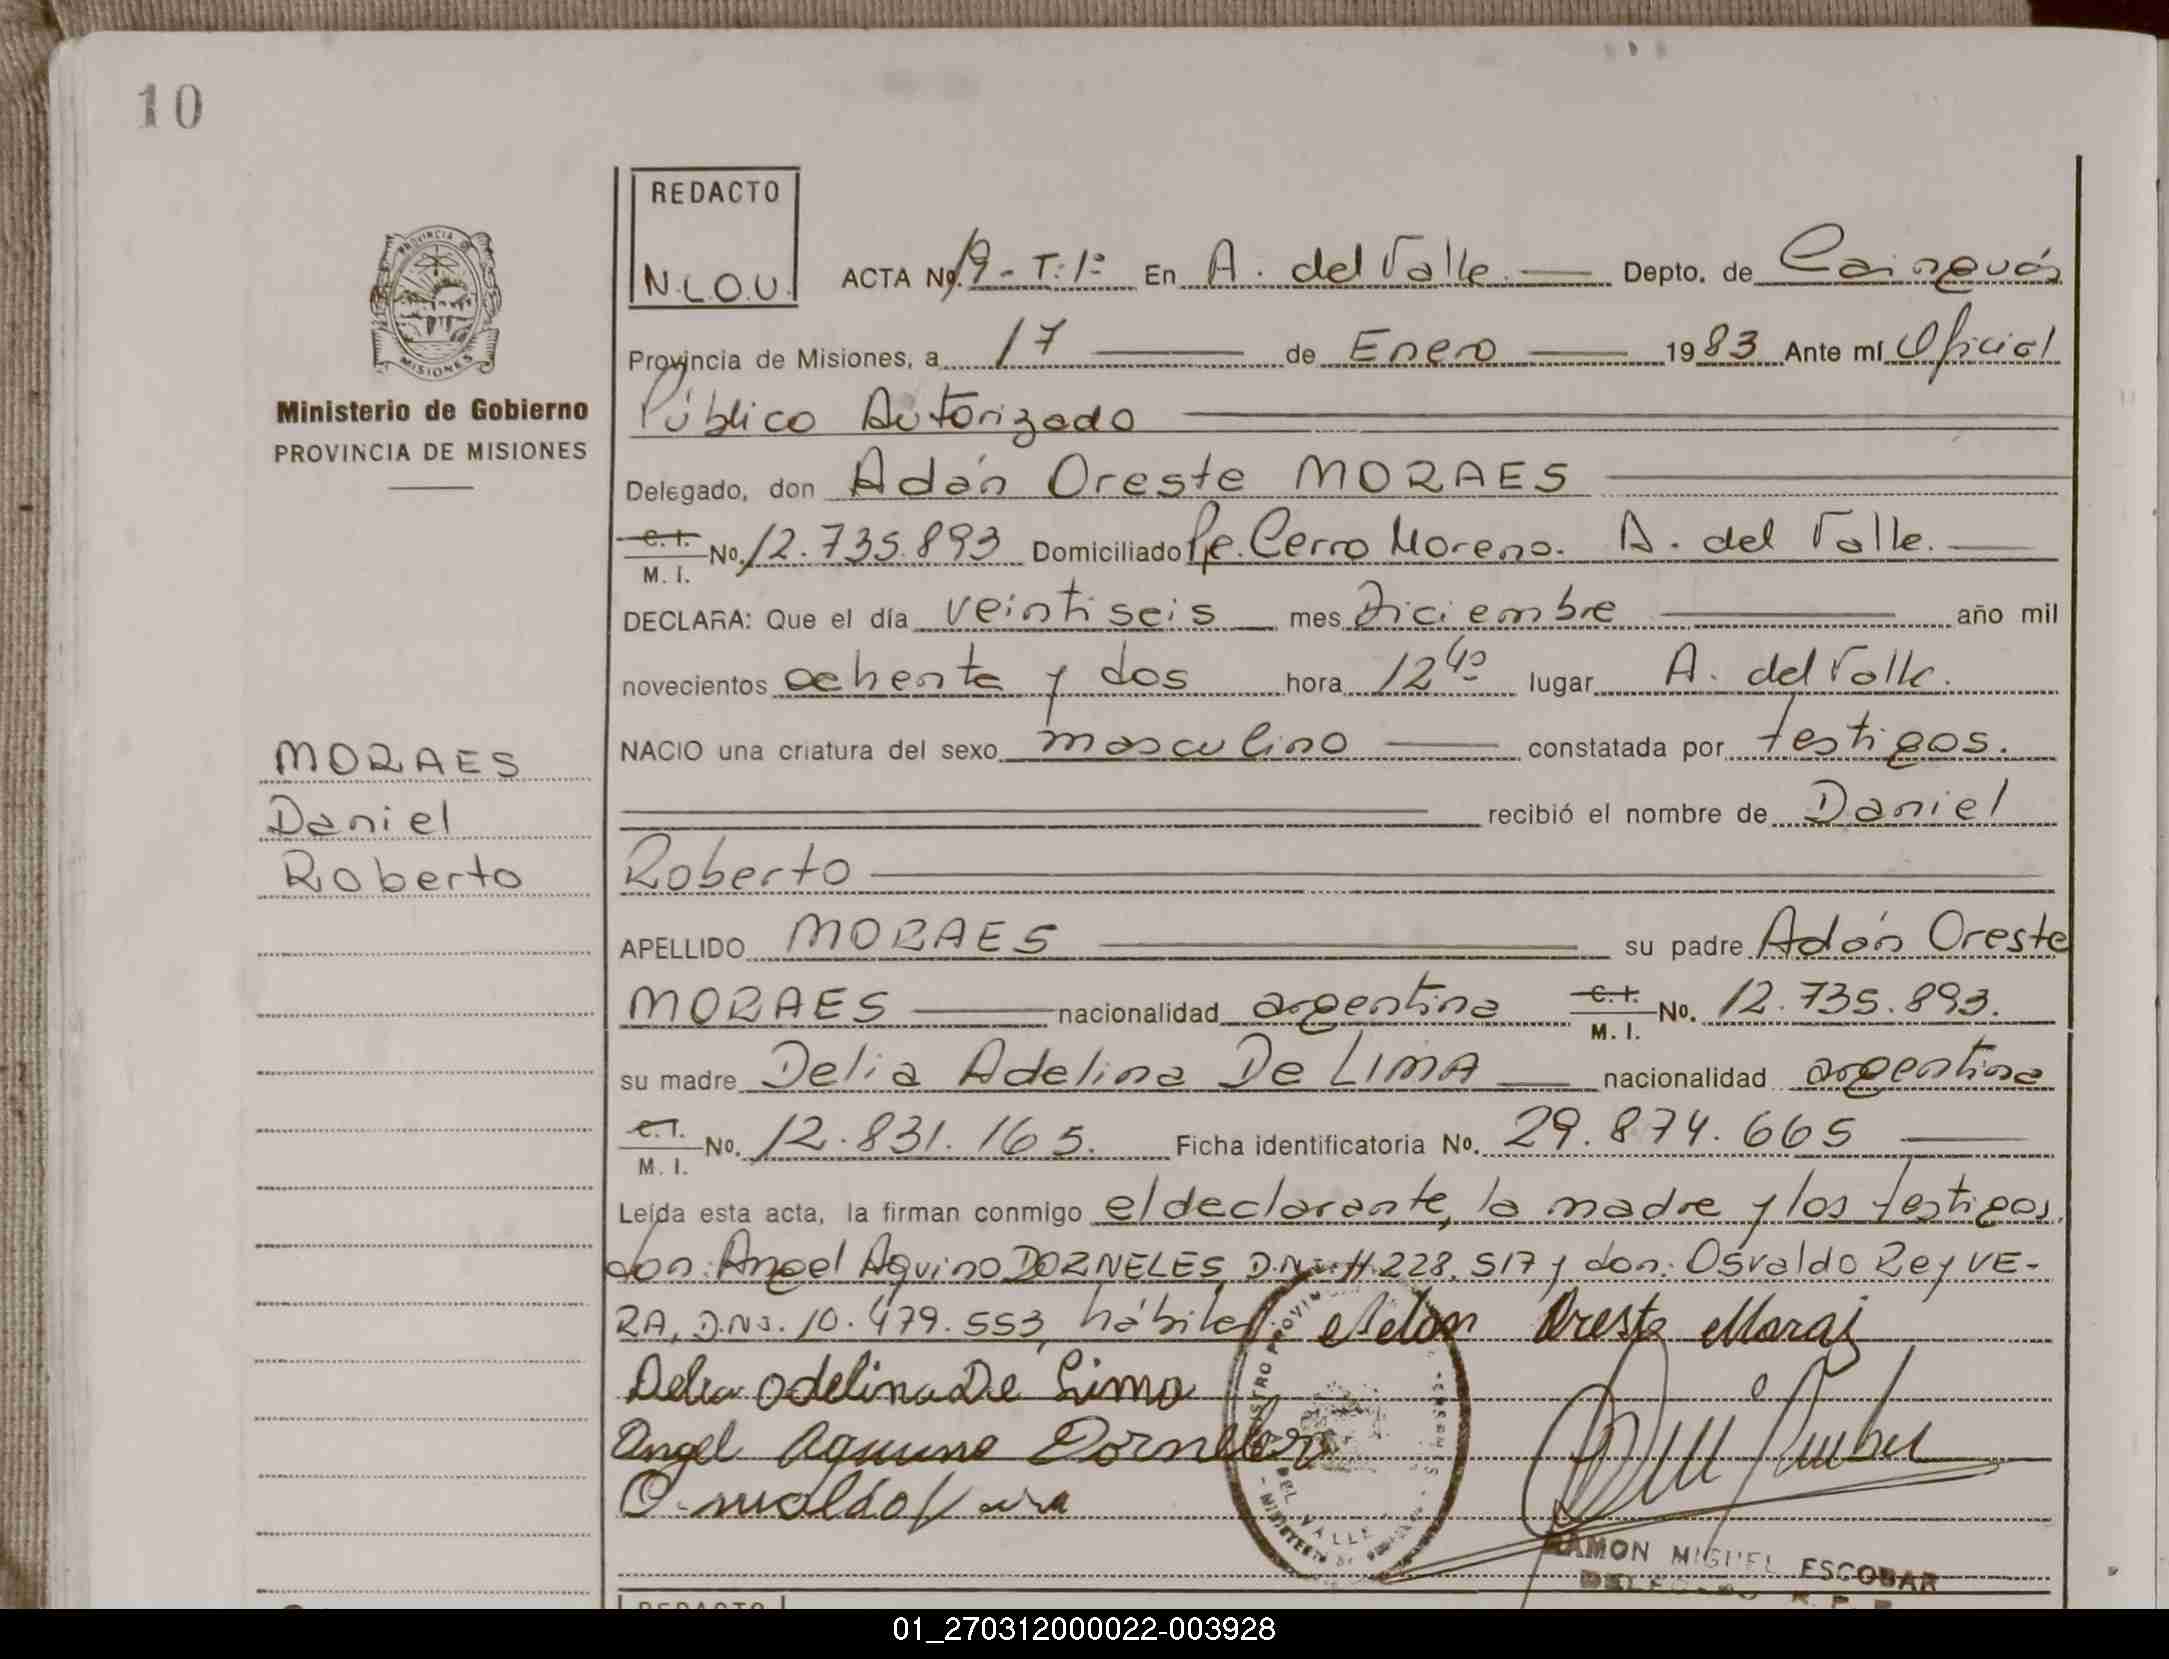 10
REDACTO
N.L.O.U.
ACTA No. 19 - T: 1º En A. del Valle. Depto. de Cainguás
Provincia de Misiones, a 17 de Enero 1983 Ante mí Oficial
Público Autorizado
Delegado, don Adán Oreste MORAES
C. I. M. I. No. 12.735.893 Domiciliado Pje. Cerro Moreno. A. del Valle.
DECLARA: Que el día veintiseis mes Diciembre año mil
novecientos ochenta y dos hora 12 40 lugar A. del Valle.
NACIO una criatura del sexo masculino constatada por testigos.
recibió el nombre de Daniel
Roberto
APELLIDO MORAES su padre Adán Oreste
MORAES nacionalidad argentina C. I. M. I. No. 12.735.893.
su madre Delia Adelina De LIMA nacionalidad argentina
C. I. M. I. No. 12.831.165. Ficha identificatoria No. 29.874.665
Leída esta acta, la firman conmigo el declarante, la madre y los testigos,
don: Angel Aquino DORNELES, D.N.I. 11.228.517 y don: Osvaldo Rey VE-
RA, D.N.I. 10.479.553, hábiles.
Adan Oreste Moraes
Delia Adelina De Lima
Angel Aquino Dorneles
Osvaldo Vera
RAMON MIGUEL ESCOBAR
PROVINCIA DE
MISIONES
Ministerio de Gobierno
PROVINCIA DE MISIONES
MORAES
Daniel
Roberto
DEL VALLE
REDACTO
01_270312000022-003928